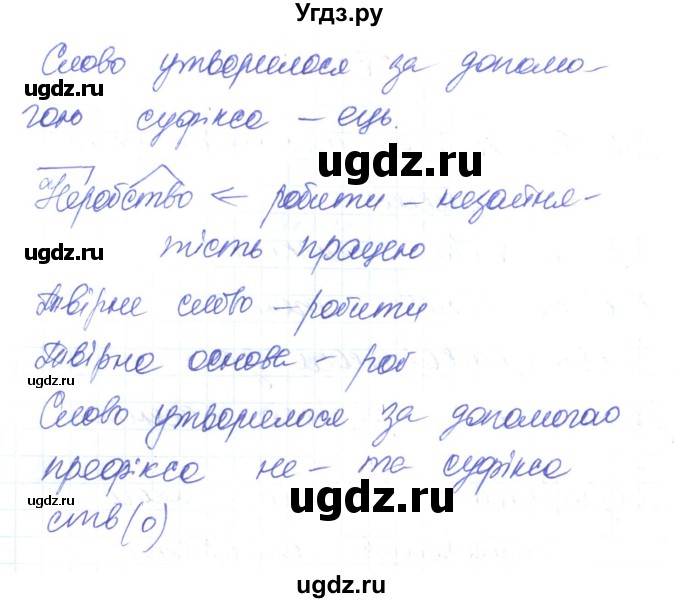 Угдз.ру
Слово утворилося за допомо-
©ugdz.ru
гою суфікса – ець.
ugdz.ru
Неробство < робити – незайня-
©ugdz.ru
тість працею
Твірне слово – робити
Твірна основа – роб
ugdz.ru
ugdz.ru
Слово утворилося за допомогаю
префікса не – та суфікса
©ugdz.ru
ugdz.ru
ств(о)
ugdz.ru